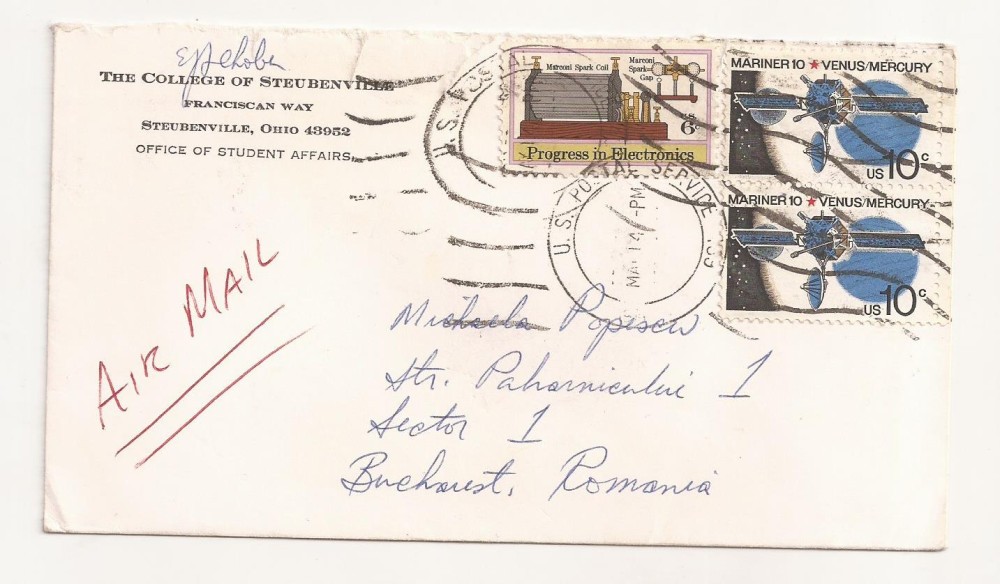 THE COLLEGE OF STEUBENVILLE
FRANCISCAN WAY
STEUBENVILLE, OHIO 43952
OFFICE OF STUDENT AFFAIRS
Marconi Spark Coil
Marconi
Spark
Gap
US 6c
Progress in Electronics
MARINER 10 ★ VENUS/MERCURY
US 10c
MARINER 10 ★ VENUS/MERCURY
US 10c
U.S. POSTAL
U.S. POSTAL SERVICE
14 PM
AIR MAIL
Michaela Popescu
Str. Paharnicului 1
Sector 1
Bucharest, Romania